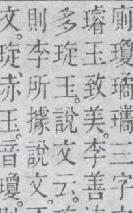 前瓊璚瓗三字
璿玉致美李善
多琁玉說文云
則李所據說文
文琁赤玉音瓊